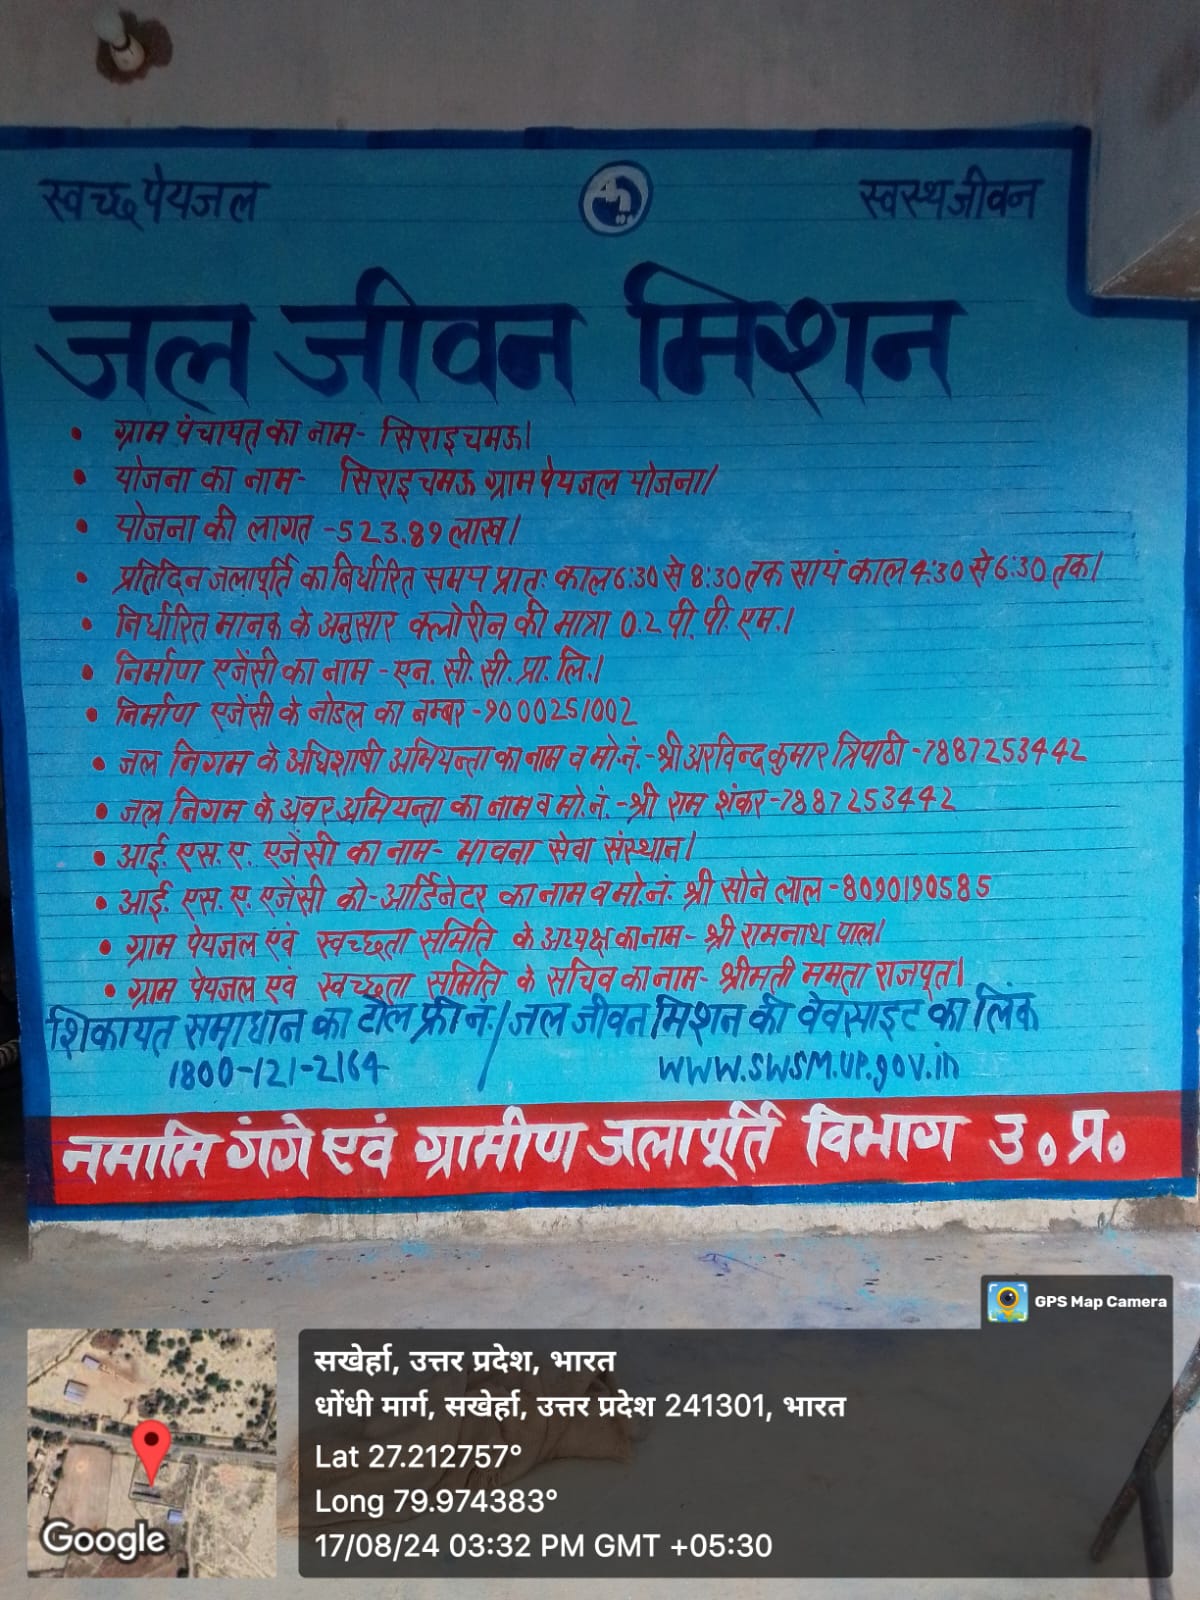 स्वच्छ पेयजल
स्वस्थ जीवन
जल जीवन मिशन
• ग्राम पंचायत का नाम- सिराइचमऊ।
• योजना का नाम- सिराइचमऊ ग्राम पेयजल योजना।
• योजना की लागत -523.89 लाख।
• प्रतिदिन जलापूर्ति का निर्धारित समय प्रातः काल 6:30 से 8:30 तक सायं काल 4:30 से 6:30 तक।
• निर्धारित मानक के अनुसार क्लोरीन की मात्रा 0.2 पी. पी. एम.।
• निर्माण एजेंसी का नाम - एन. सी. सी. प्रा. लि.।
• निर्माण एजेंसी के नोडल का नम्बर -9000251002
• जल निगम के अधिशाषी अभियन्ता का नाम व मो.नं.-श्री अरविन्द कुमार त्रिपाठी -7887253442
• जल निगम के अवर अभियन्ता का नाम व मो. नं. -श्री राम शंकर -7887253442
• आई. एस. ए. एजेंसी का नाम- भावना सेवा संस्थान।
• आई. एस. ए. एजेंसी को-आर्डिनेटर का नाम व मो.नं. श्री सोने लाल -8090190585
• ग्राम पेयजल एवं स्वच्छता समिति के अध्यक्ष का नाम- श्री रामनाथ पाल।
• ग्राम पेयजल एवं स्वच्छता समिति के सचिव का नाम- श्रीमती ममता राजपूत।
शिकायत समाधान का टोल फ्री नं. / जल जीवन मिशन की वेवसाइट का लिंक
1800-121-2164 www.swsm.up.gov.in
नमामि गंगे एवं ग्रामीण जलापूर्ति विभाग उ॰ प्र॰
GPS Map Camera
सखेर्हा, उत्तर प्रदेश, भारत
धोंधी मार्ग, सखेर्हा, उत्तर प्रदेश 241301, भारत
Lat 27.212757°
Long 79.974383°
17/08/24 03:32 PM GMT +05:30
Google